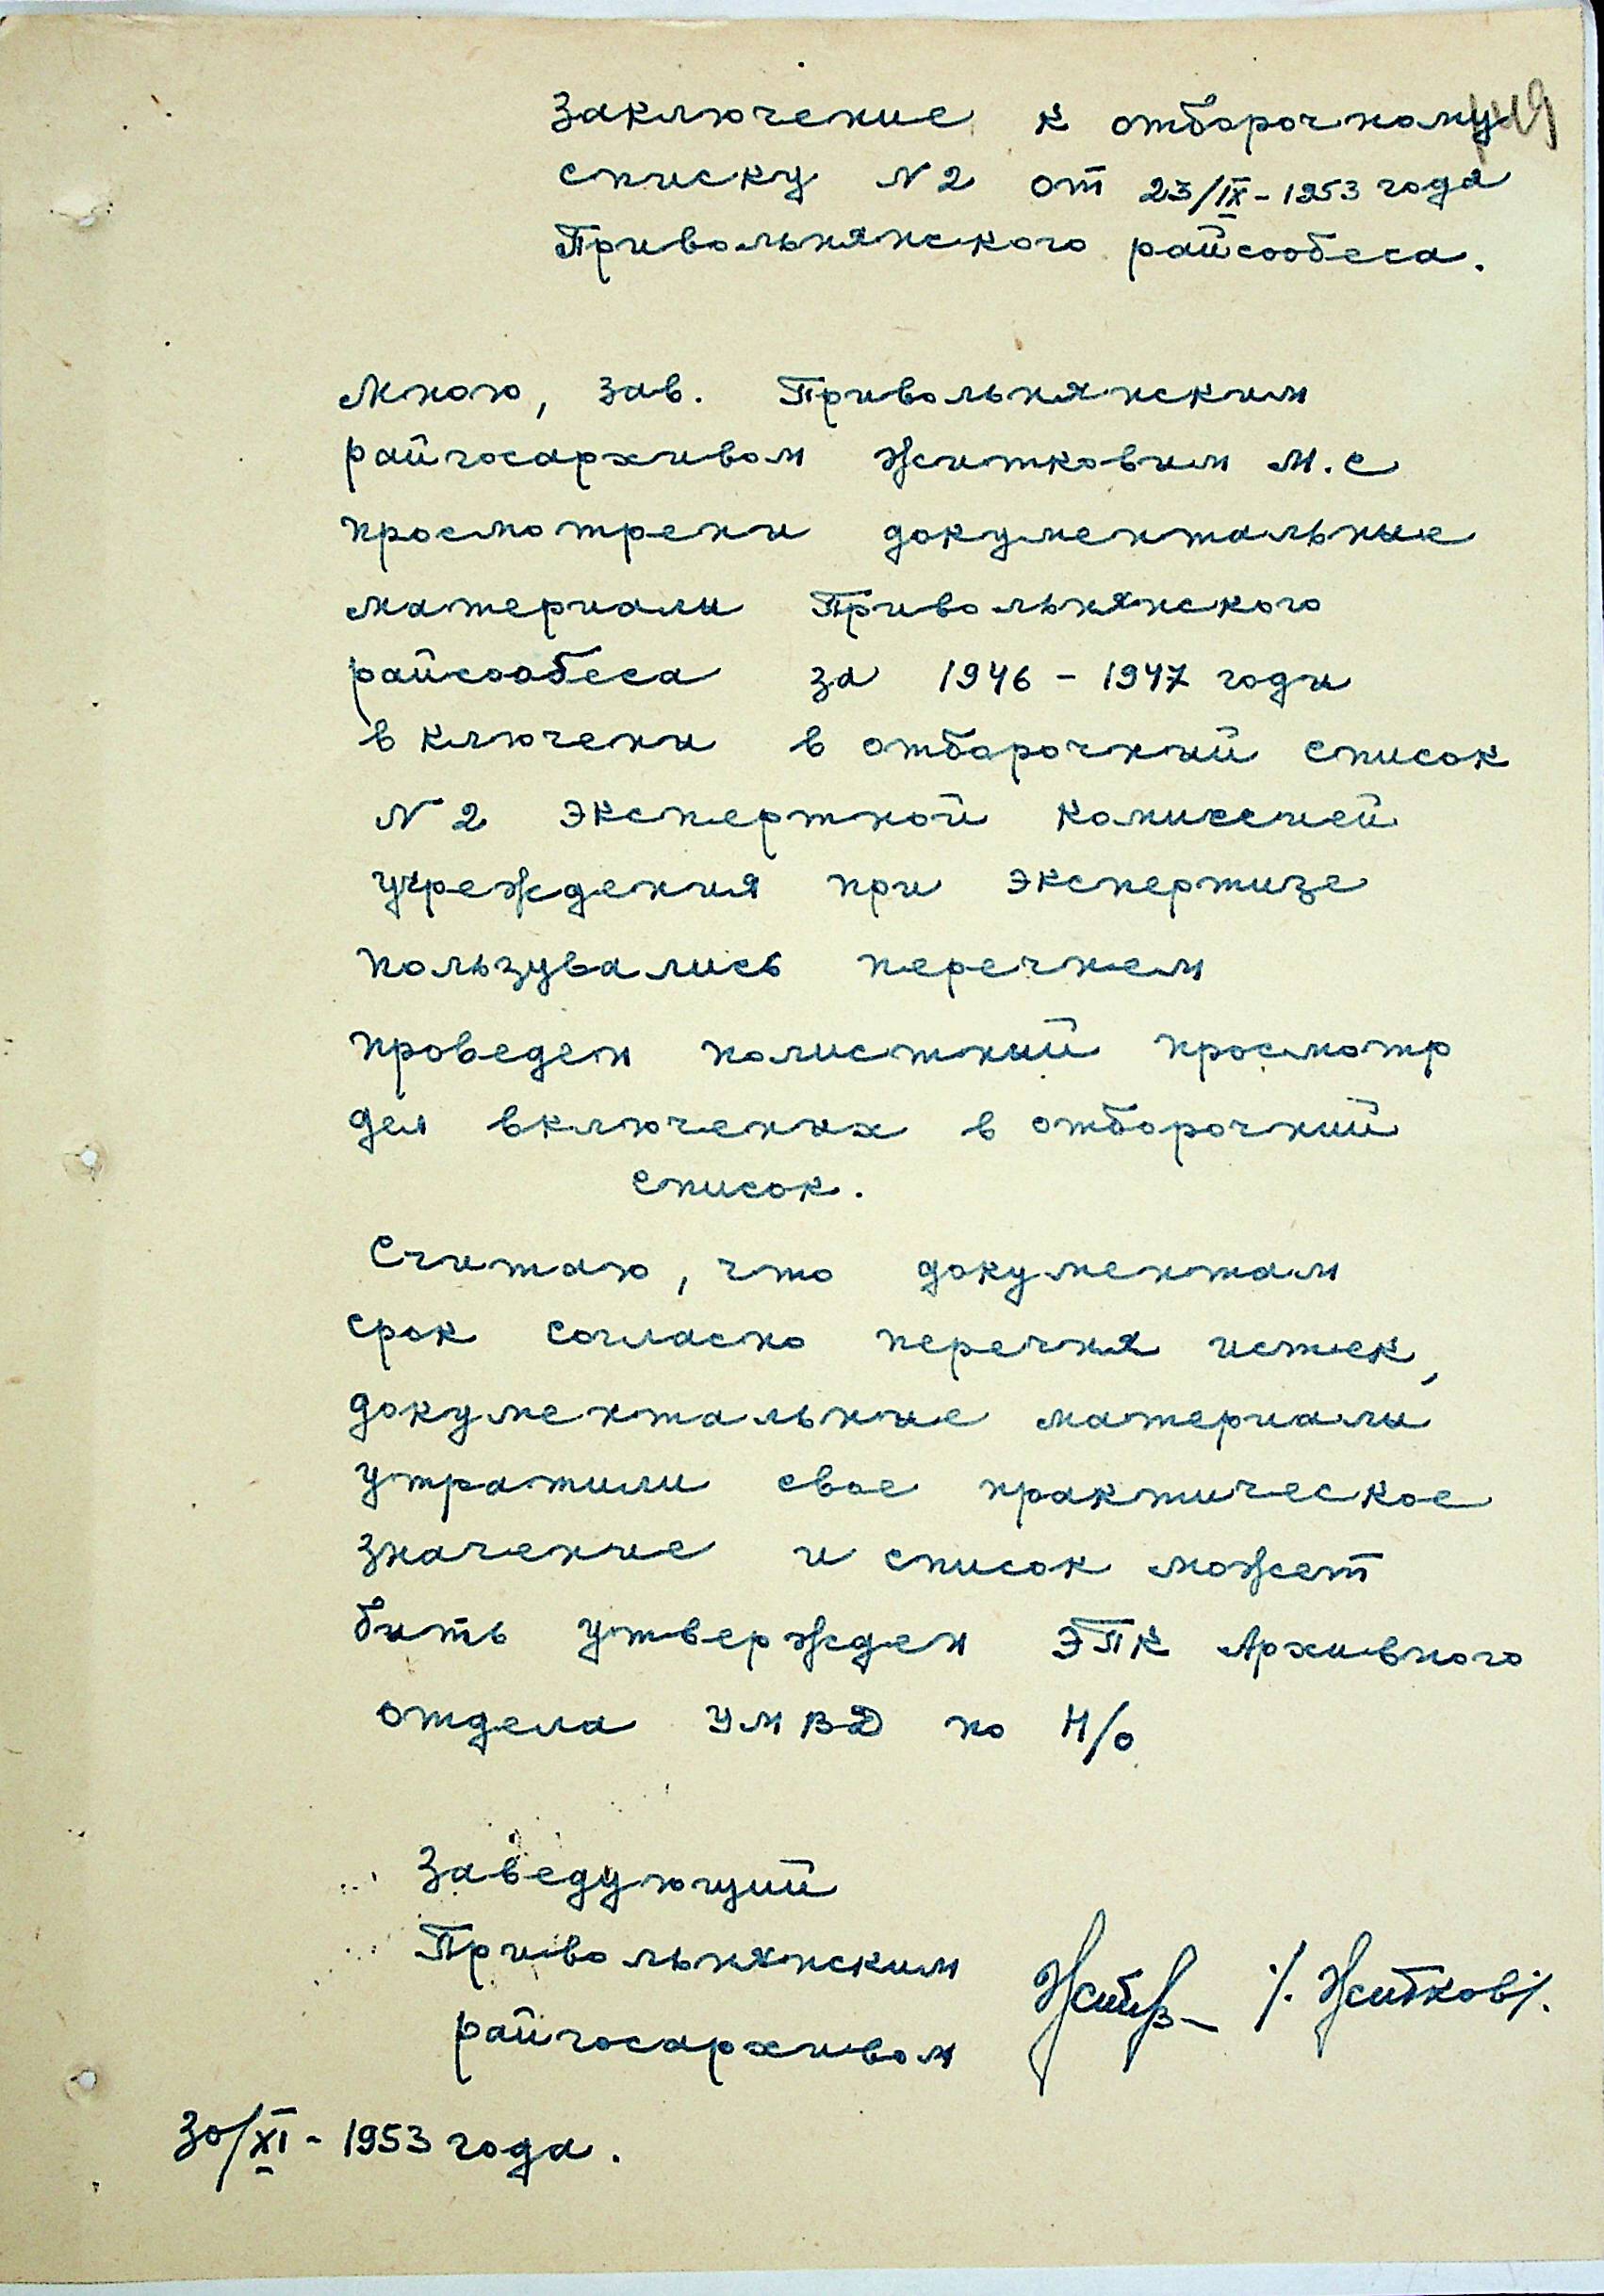 Заключение к отборочному
списку N 2 от 23/IX - 1953 года
Привольнянского райсообеса.
Мною, зав. Привольнянским
райгосархивом Житковим М.С
просмотрени документальные
материали Привольнянского
райсообеса за 1946 - 1947 годи
включени в отборочний список
N 2 экспертной комиссией
учреждения при экспертизе
пользувались перечнем
проведен полистний просмотр
дел включених в отборочний
список.
Считаю, что документам
срок согласно перечня истек,
документальние материали
утратили свое практическое
значение и список может
бить утвержден ЭПК Архивного
отдела УМВД по Н/о
Заведующий
Привольнянским
райгосархивом /. Житков/.
30/XI - 1953 года.